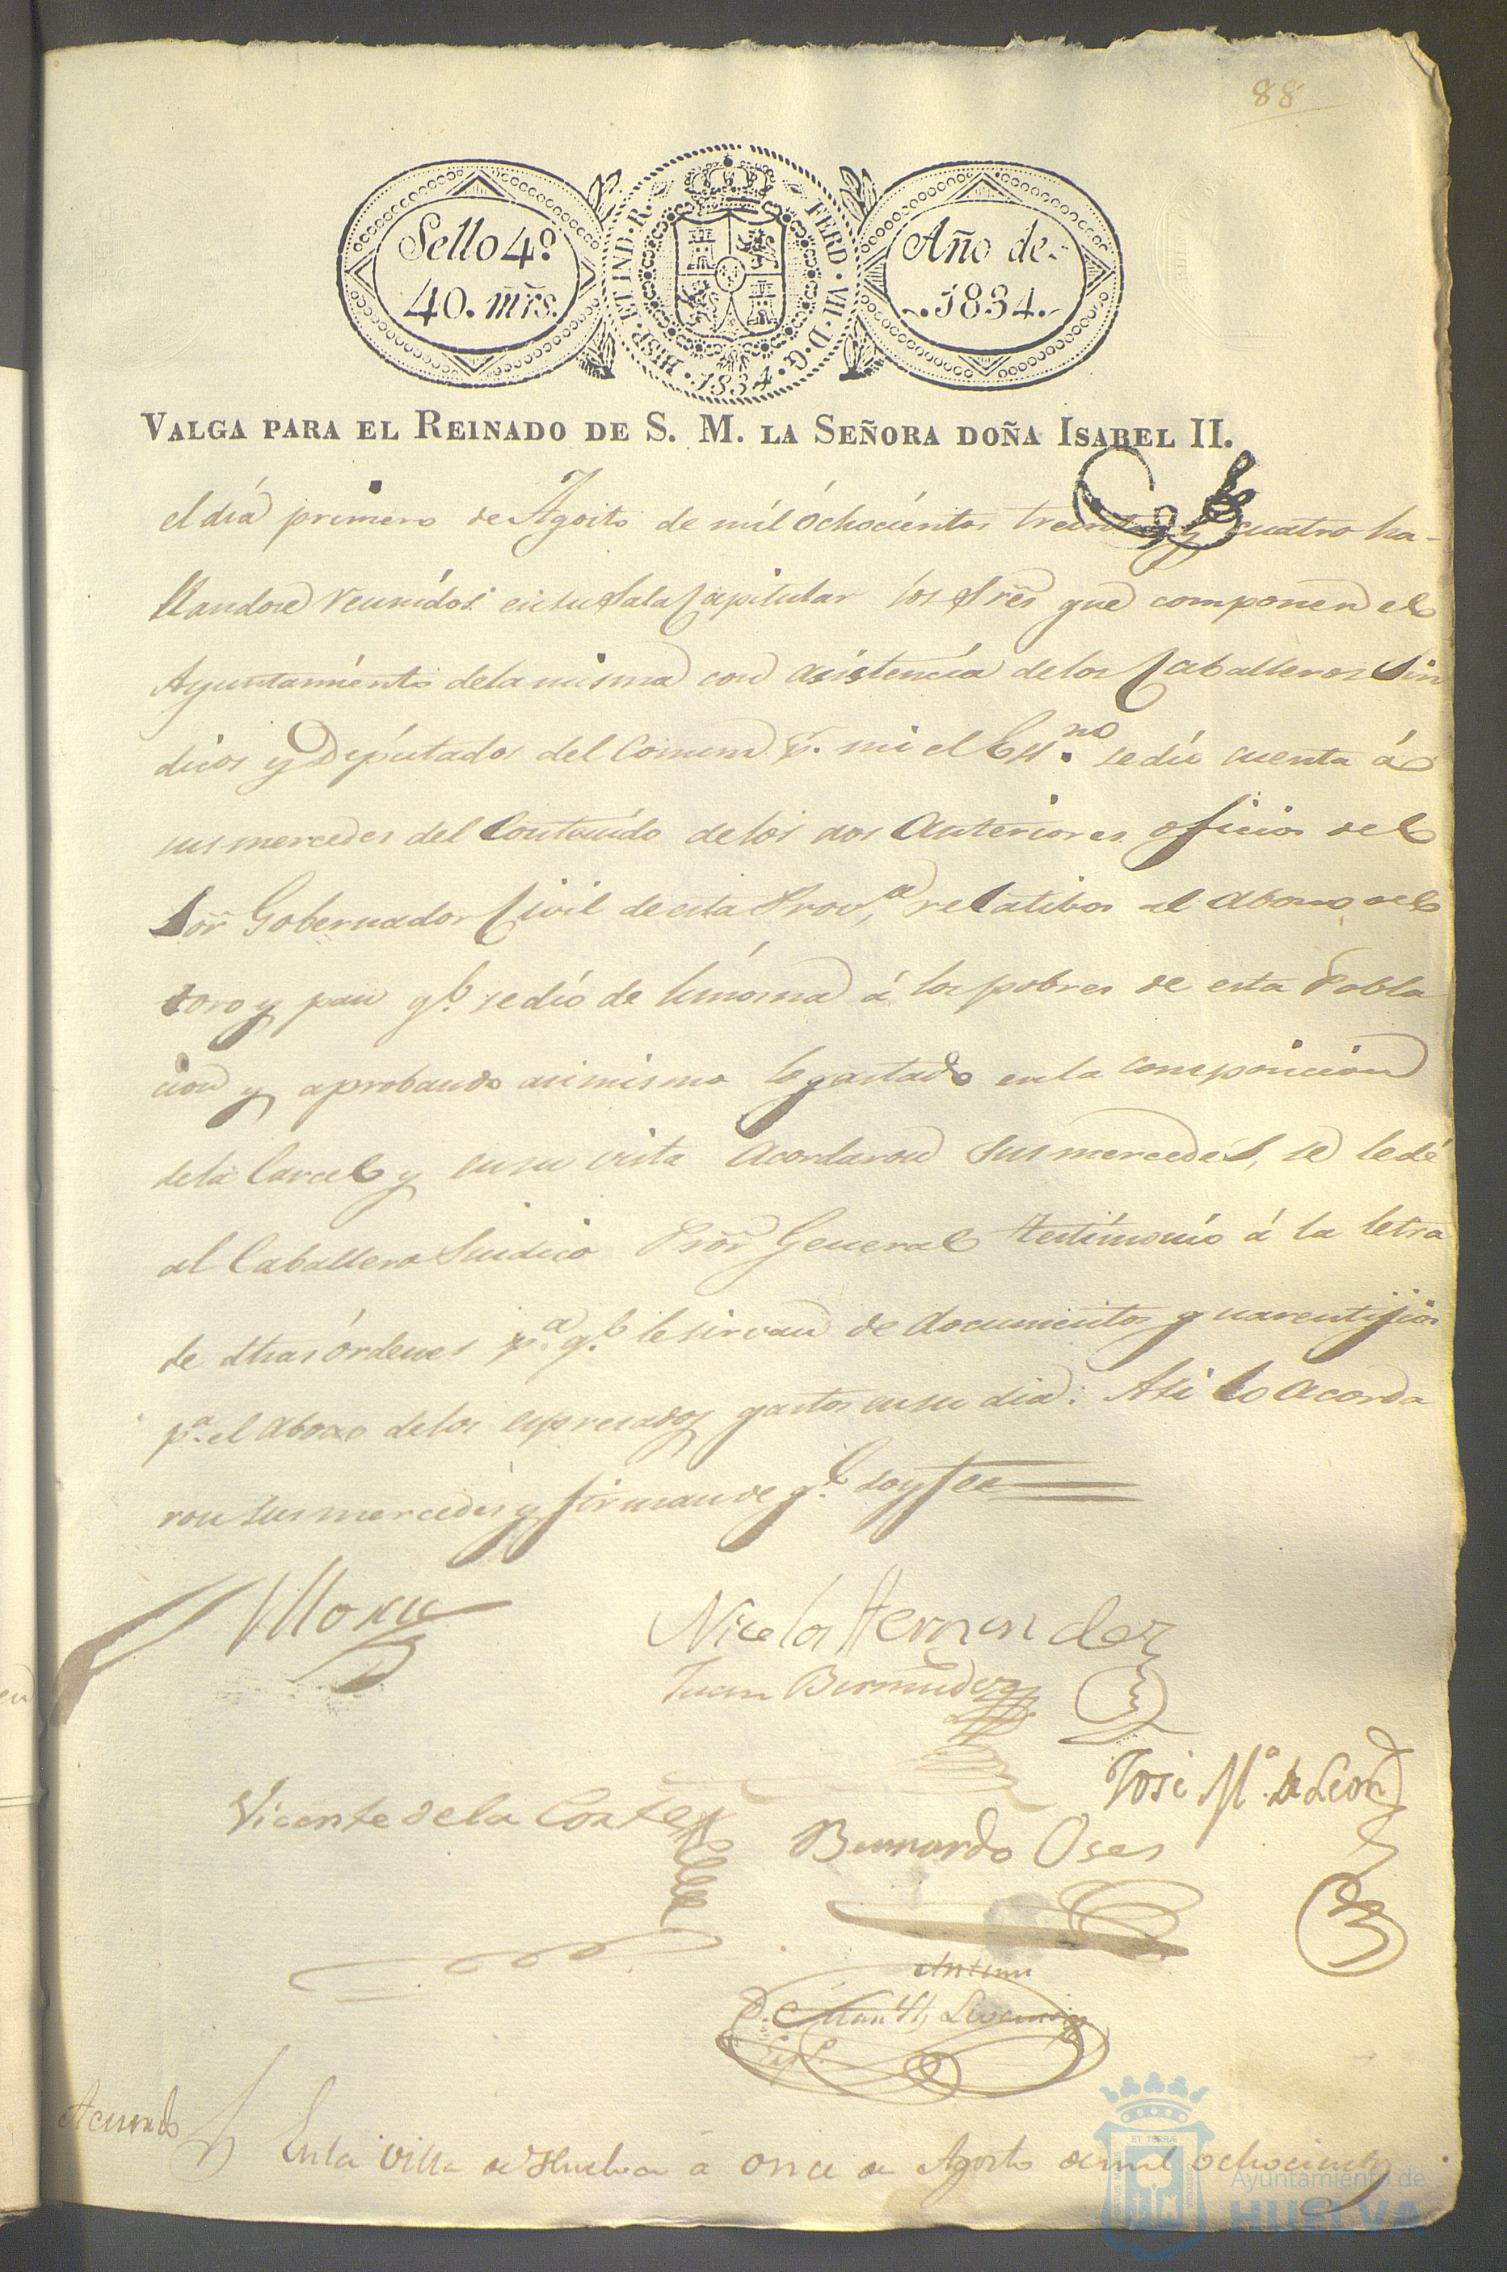 88
Sello 4º
40. mrs.
HISP. ET IND. R. FERD. VII. D. G. 1834.
Año de
1834.
VALGA PARA EL REINADO DE S. M. LA SEÑORA DOÑA ISABEL II.
el día primero de Agosto de mil óchocientos treinta y cuatro ha-
llandose reunidos en su Sala Capitular los Sres que componen el
Ayuntamiento de la misma con asistencia de los Caballeros Sin
dicos y Diputados del Comun p. mi el Essno se dió cuenta á
sus mercedes del Contenido de los dos anteriores oficios del
Sor Gobernador Civil de esta Prova relatibos al abono del
toro y pan q.e se dió de limosna á los pobres de esta Pobla
cion y aprobando asimismo lo gastado en la composicion
de la Carcel y en su vista Acordaron sus mercedes, se le dé
al Caballero Sindico Pror General testimonio á la letra
de dhas órdenes p.a q.e le sirvan de documentos guarentijios
p.a el abono de los espresados gastos en su dia: Asi lo acorda
ron sus mercedes y firman de q.e doy fee
Nicolas Hernandez
Juan Bermudez
José M.a de Leon
Vicente de la Corte
Bernardo Oses
Antemi
Acuerdo
En la villa de Huelva á once de Agosto de mil ochocientos
ET TERRÆ
Ayuntamiento de
HUELVA